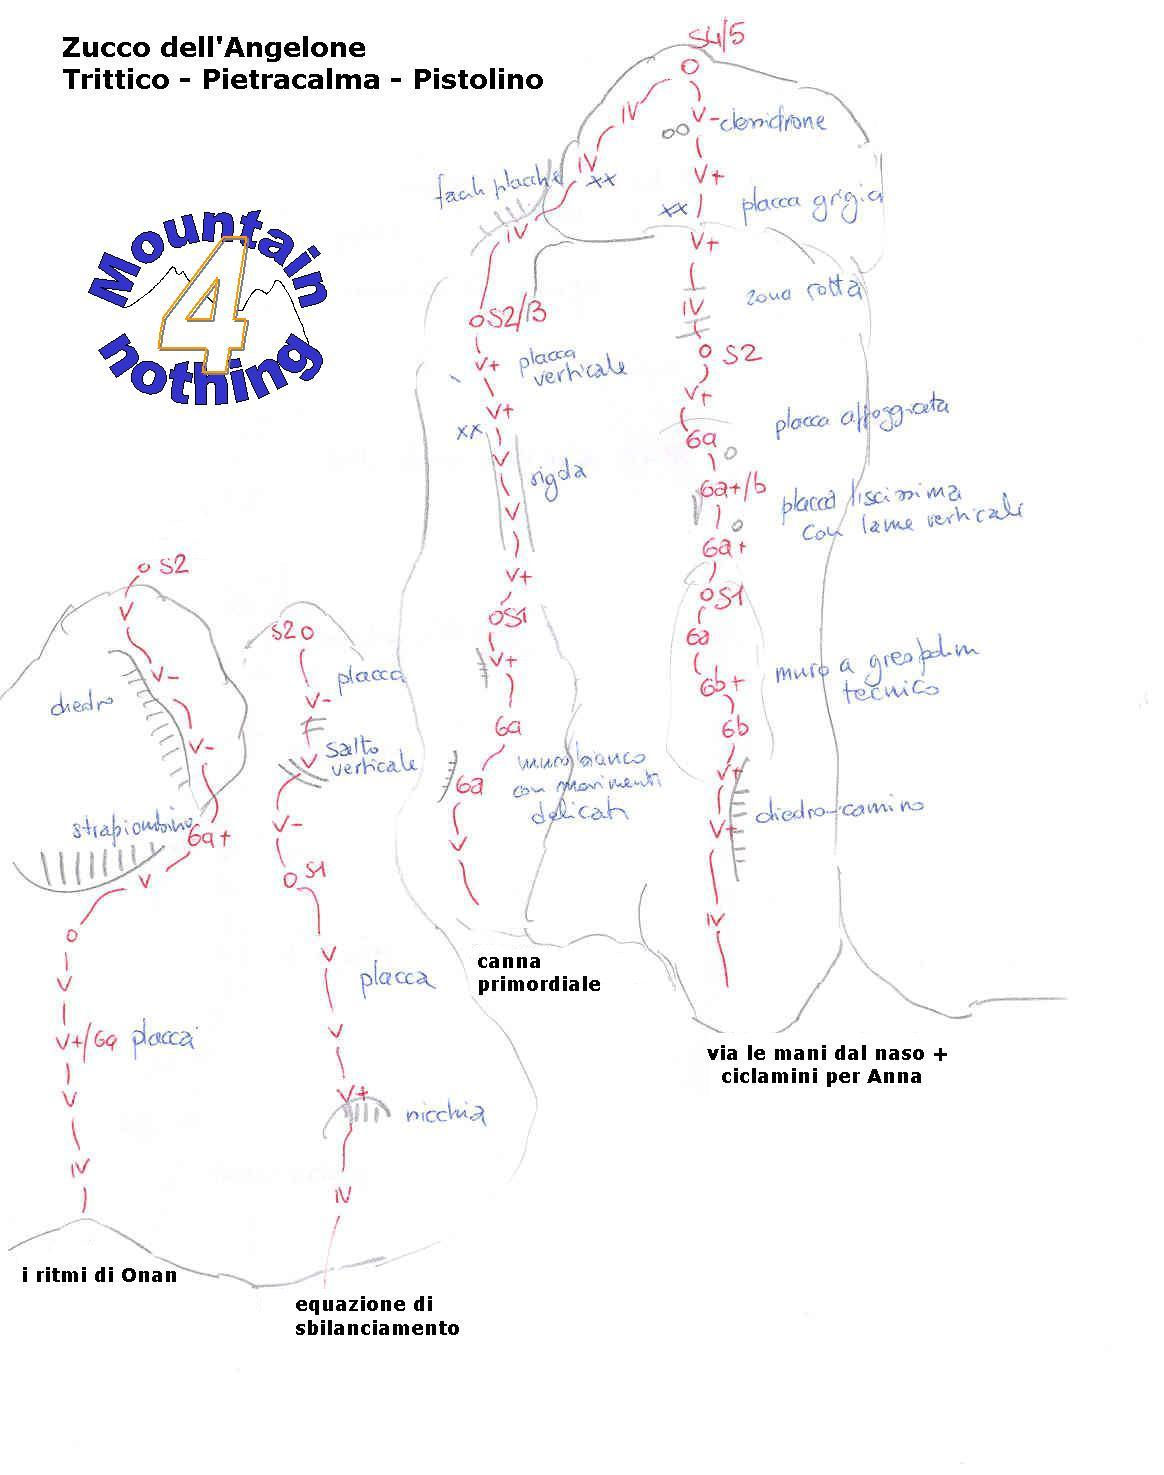 Zucco dell'Angelone
Trittico - Pietracalma - Pistolino
Mountain
4
nothing
S4/5
IV
V-
clessidrone
IV
xx
V+
placca grigia
xx
facili placche
IV
V+
zona rotta
IV
S2/3
S2
V+
placca
verticale
V+
placca appoggiata
V+
xx
6a
V
rigola
6a+/b
placca liscissima
con lame verticali
V
6a+
V+
S1
S1
6a
V+
6b+
muro a gres polim
tecnico
6a
6b
6a
muro bianco
con movimenti
delicati
V+
diedro-camino
V+
V
IV
canna
primordiale
via le mani dal naso +
ciclamini per Anna
S2
V
V-
diedro
V-
strapiombino
6a+
V
V
V+/6a
placca
V
IV
i ritmi di Onan
S2
placca
V-
salto
verticale
V
V-
S1
V
placca
V
V+
nicchia
IV
equazione di
sbilanciamento